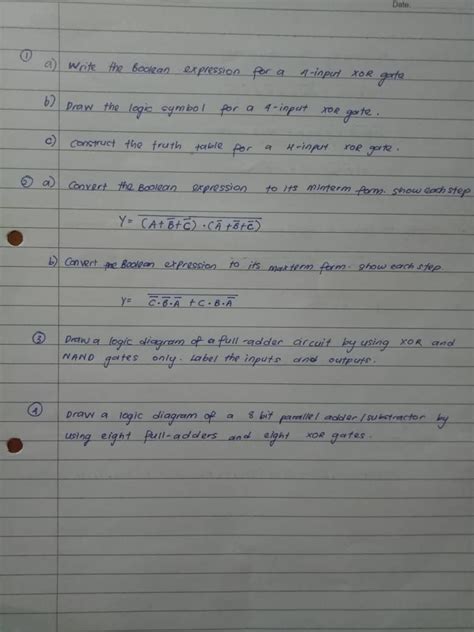 Date.
① a) Write the Boolean expression for a 4-input XOR gate
b) Draw the logic symbol for a 4-input XOR gate.
c) Construct the truth table for a 4-input XOR gate.
② a) Convert the Boolean expression to its minterm form. show each step
Y = \overline{(A+\overline{B}+\overline{C}) · (\overline{A}+\overline{B}+\overline{C})}
b) Convert the Boolean expression to its maxterm form. show each step
Y= \overline{\overline{C}·\overline{B}·\overline{A} + C·B·\overline{A}}
③ Draw a logic diagram of a full-adder circuit by using XOR and
NAND gates only. Label the inputs and outputs.
④ Draw a logic diagram of a 8 bit parallel adder/substractor by
using eight full-adders and eight XOR gates.